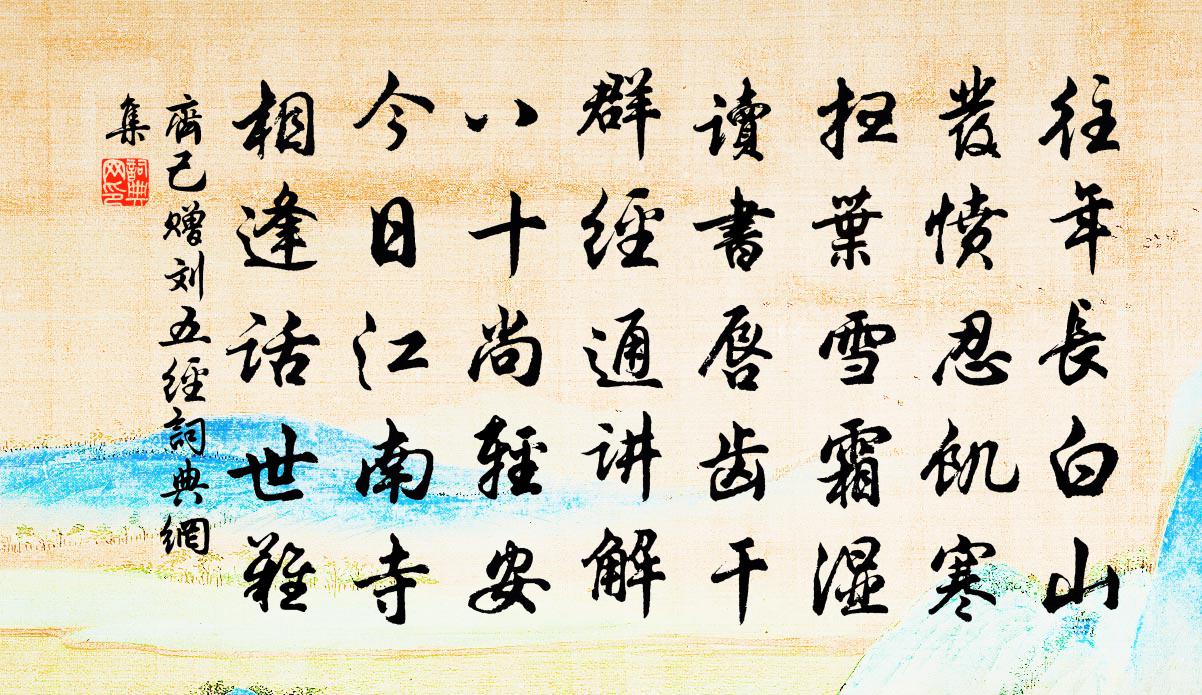 往年長白山
發憤忍飢寒
扫葉雪霜濕
讀書唇齿干
群經通讲解
八十尚輕安
今日江南寺
相逢話世難
齊己赠刘五經詞典網
集
詞典網印